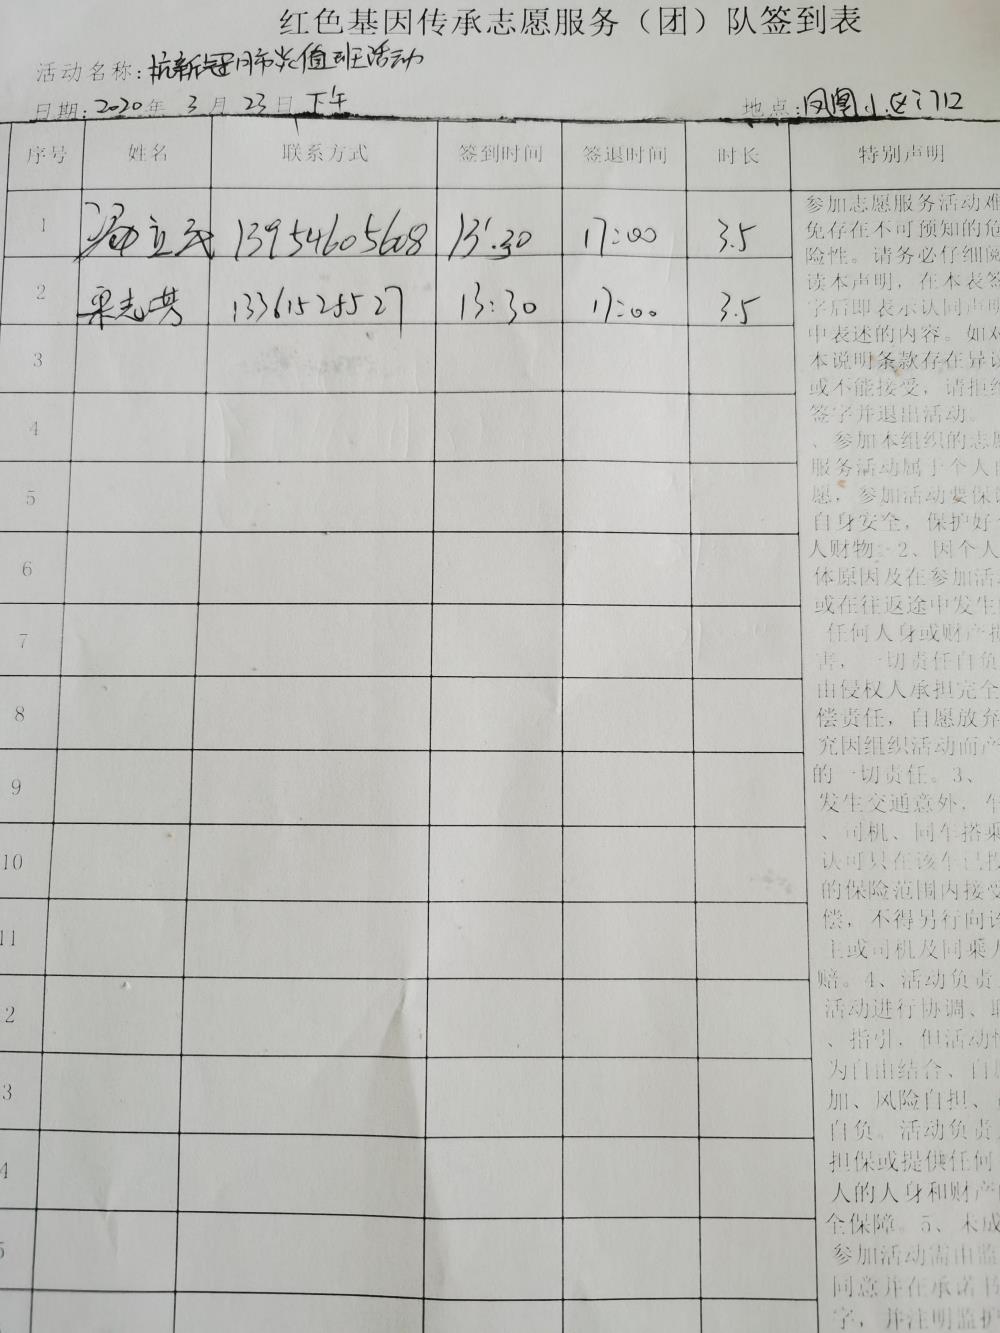 红色基因传承志愿服务（团）队签到表
活动名称:抗新冠肺炎值班活动
日期:2020年 3月 23日 下午 地点:凤凰小区门口
序号 姓名 联系方式 签到时间 签退时间 时长 特别声明
1 立民 13954605608 13:30 17:00 3.5
2 栗志芳 13361525527 13:30 17:00 3.5
3
4
5
6
7
8
9
10
11
2
3
4
5
参加志愿服务活动难
免存在不可预知的危
险性。请务必仔细阅
读本声明，在本表签
字后即表示认同声明
中表述的内容。如对
本说明条款存在异议
或不能接受，请拒绝
签字并退出活动。
、参加本组织的志愿
服务活动属于个人自
愿，参加活动要保证
自身安全，保护好
人财物。2、因个人
体原因及在参加活动
或在往返途中发生
任何人身或财产损
害，一切责任自负
由侵权人承担完全
偿责任，自愿放弃
究因组织活动而产
的一切责任。3、
发生交通意外，车
、司机、同车搭乘
认可只在该车已投
的保险范围内接受
偿，不得另行向许
主或司机及同乘人
赔。4、活动负责
活动进行协调、联
、指引，但活动性
为自由结合、自愿
加、风险自担、
自负。活动负责
担保或提供任何
人的人身和财产
全保障。5、未成
参加活动需由监
同意并在承诺书
字，并注明监护